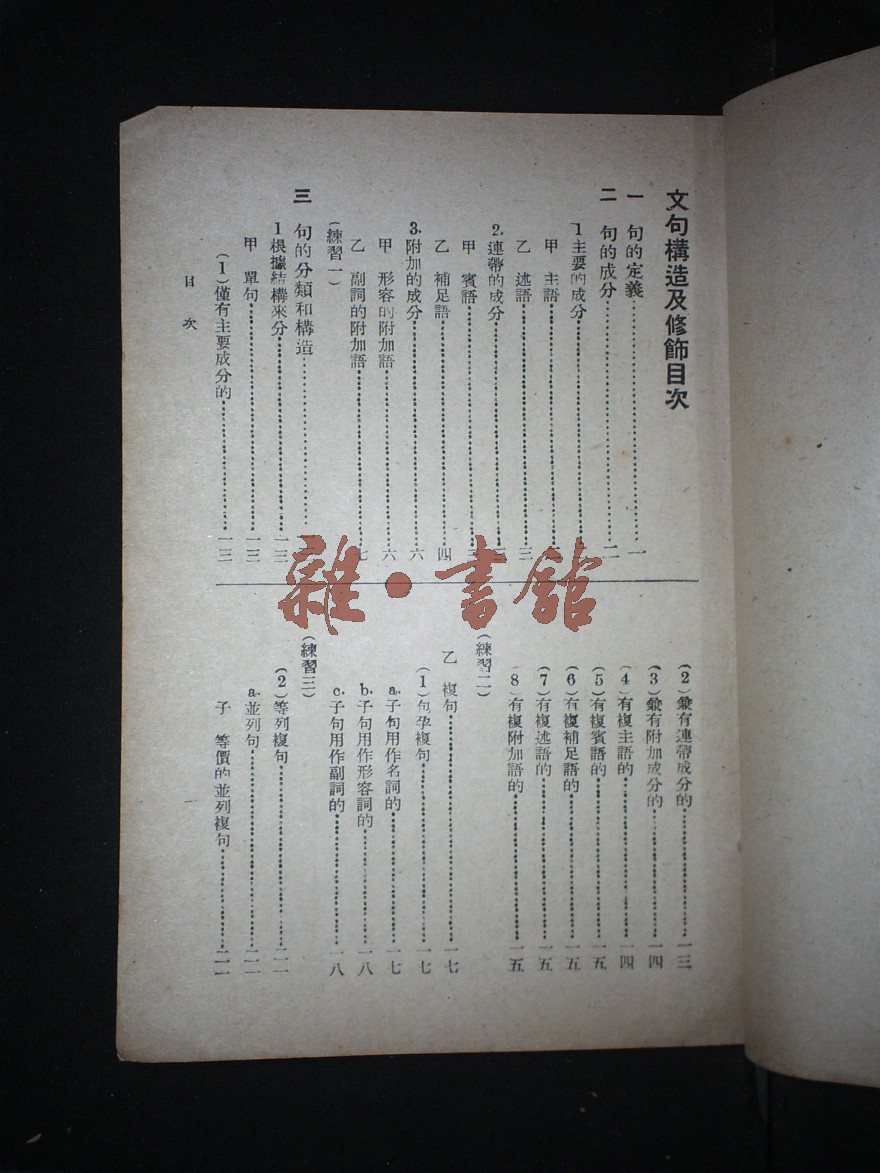 文句構造及修飾目次
一 句的定義 一
二 句的成分 二
1 主要的成分
甲 主語
乙 述語 三
2. 連帶的成分
甲 賓語
乙 補足語 四
3. 附加的成分 六
甲 形容的附加語 六
乙 副詞的附加語 七
(練習一)
三 句的分類和構造
1 根據結構來分 一三
甲 單句 一三
(1)僅有主要成分的 一三
(2)兼有連帶成分的 一三
(3)兼有附加成分的 一四
(4)有複主語的 一四
(5)有複賓語的 一五
(6)有複補足語的 一五
(7)有複述語的 一五
(8)有複附加語的 一五
(練習二)
乙 複句 一七
(1)包孕複句 一七
a. 子句用作名詞的 一七
b. 子句用作形容詞的 一八
c. 子句用作副詞的 一八
(練習三)
(2)等列複句 二一
a. 並列句 二一
子 等價的並列複句 二一
目次 一
雜·書館